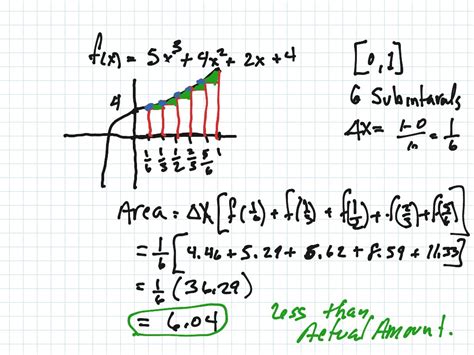 f(x) = 5x³ + 4x² + 2x + 4
[0,1]
6 Subintervals
Δx = 1-0/n = 1/6
4
1/6 1/3 1/2 2/3 5/6 1
Area = Δx [f(1/6) + f(1/3) + f(1/2) + f(2/3) + f(5/6)]
= 1/6 [4.46 + 5.29 + 5.62 + 8.59 + 11.33]
= 1/6 (36.29)
= 6.04
less than
Actual Amount.